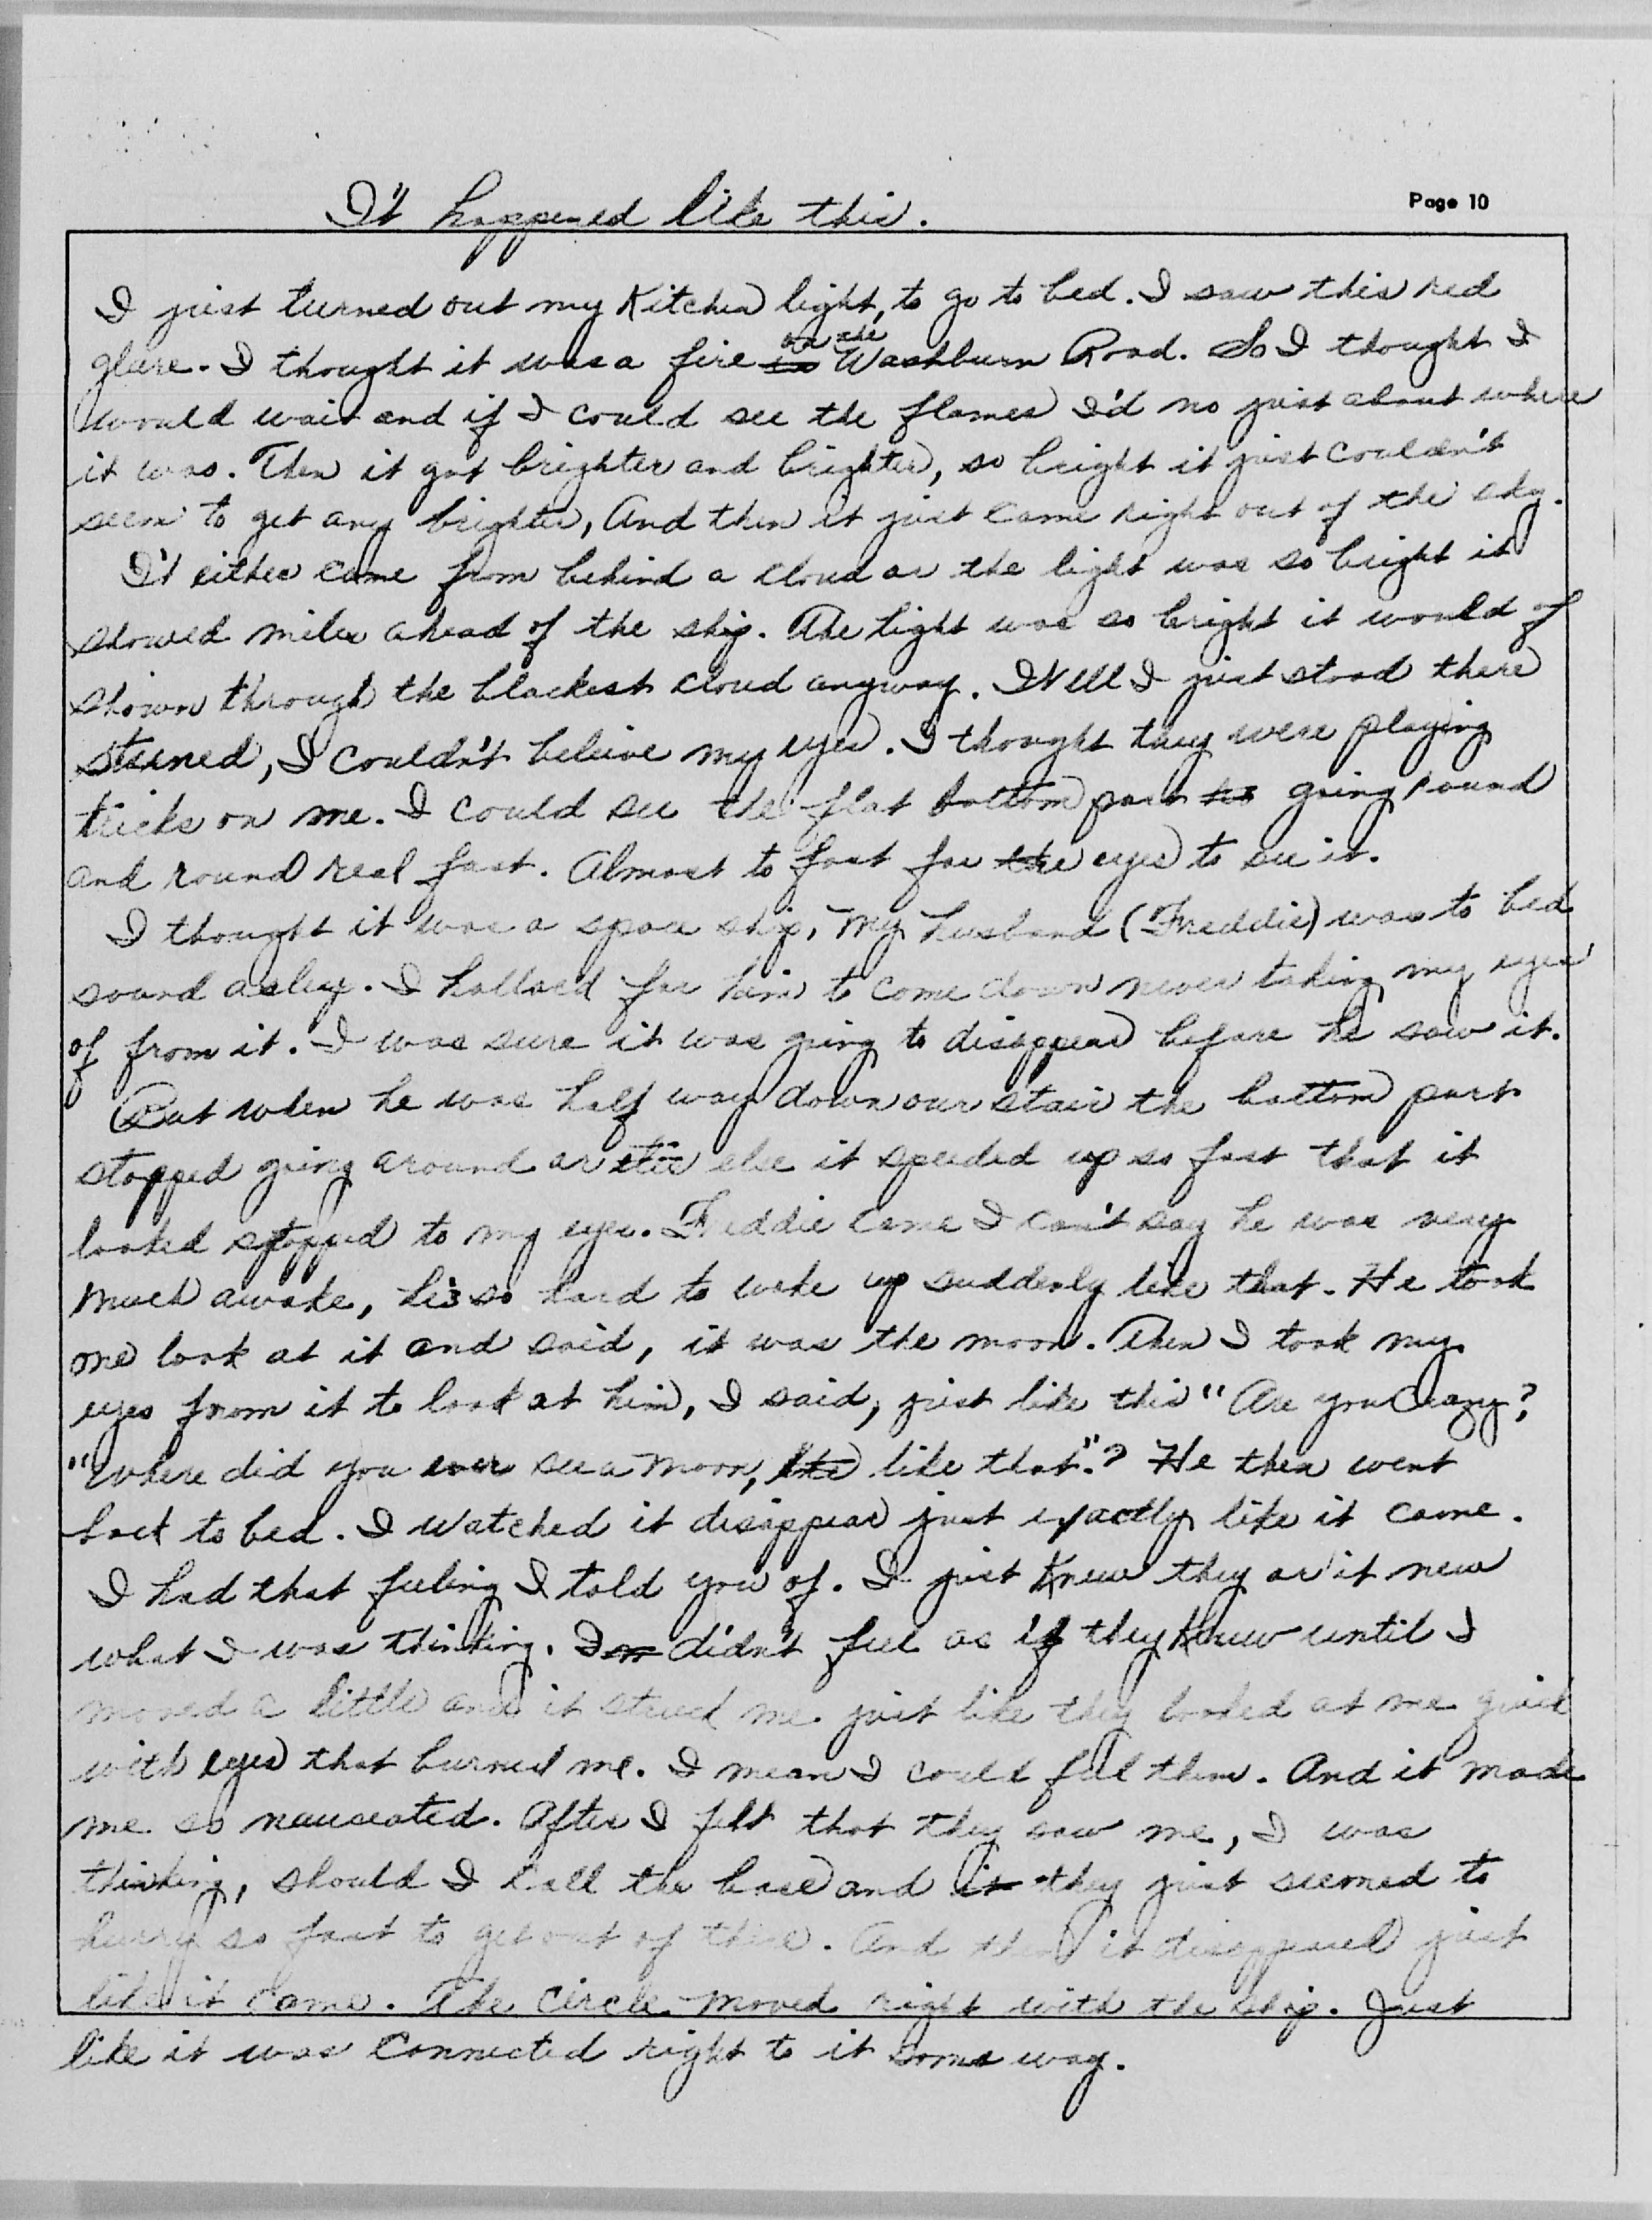 It happened like this.
Page 10
I just turned out my Kitchen light, to go to bed. I saw this red
glare. I thought it was a fire on the Washburn Road. So I thought I
would wait and if I could see the flames I'd no just about where
it was. Then it got brighter and brighter, so bright it just couldn't
seem to get any brighter, And then it just came right out of the sky.
It either came from behind a cloud or the light was so bright it
showed miles ahead of the ship. The light was so bright it would of
shown through the blackest cloud anyway. Well I just stood there
stuned, I couldn't beleive my eyes. I thought they were playing
tricks on me. I could see the flat bottom part going round
and round real fast. Almost to fast for the eyes to see it.
I thought it was a space ship, my husband (Freddie) was to bed
sound asleep. I hollared for him to come down never taking my eyes
of from it. I was sure it was going to disappear before he saw it.
But when he was half way down our stair the bottom part
stopped going around or else it speeded up so fast that it
looked stopped to my eyes. Freddie came I can't say he was very
much awake, he's so hard to wake up suddenly like that. He took
one look at it and said, it was the moon. Then I took my
eyes from it to look at him, I said, just like this "Are you Crazy?
"Where did you ever see a moon, like that."? He then went
back to bed. I watched it disappear just exactly like it came.
I had that feeling I told you of. I just Knew they or it new
what I was thinking. I didn't feel as if they Knew until I
moved a little and it struck me just like they looked at me quick
with eyes that burned me. I mean I could feel them. And it made
me so nauseated. After I felt that they saw me, I was
thinking, should I call the base and they just seemed to
hurry so fast to get out of there. And then it disappeared just
like it came. The circle moved right with the ship. Just
like it was connected right to it some way.